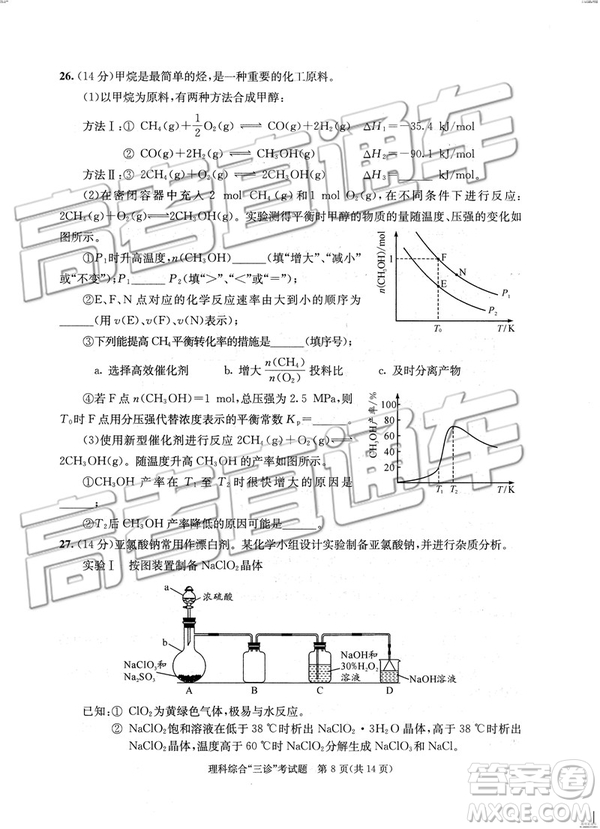 26.(14分)甲烷是最简单的烃,是一种重要的化工原料。
(1)以甲烷为原料,有两种方法合成甲醇:
方法Ⅰ:① CH₄(g)+1/2O₂(g)⇌CO(g)+2H₂(g) ΔH₁=-35.4 kJ/mol
② CO(g)+2H₂(g)⇌CH₃OH(g) ΔH₂=-90.1 kJ/mol
方法Ⅱ:③ 2CH₄(g)+O₂(g)⇌2CH₃OH(g) ΔH₃=____kJ/mol
(2)在密闭容器中充入 2 mol CH₄(g)和1 mol O₂(g),在不同条件下进行反应:
2CH₄(g)+O₂(g)⇌2CH₃OH(g)。实验测得平衡时甲醇的物质的量随温度、压强的变化如
图所示。
①P₁时升高温度,n(CH₃OH)____(填“增大”、“减小”
或“不变”);P₁____P₂(填“>”、“<”或“=”)。
②E、F、N点对应的化学反应速率由大到小的顺序为
____(用v(E)、v(F)、v(N)表示)。
③下列能提高CH₄平衡转化率的措施是____(填序号)
a. 选择高效催化剂 b. 增大n(CH₄)/n(O₂)投料比 c. 及时分离产物
④若F点n(CH₃OH)=1 mol,总压强为2.5 MPa,则
T₀时F点用分压强代替浓度表示的平衡常数Kp=____。
(3)使用新型催化剂进行反应2CH₄(g)+O₂(g)⇌
2CH₃OH(g)。随温度升高CH₃OH的产率如图所示。
①CH₃OH的产率在T₁至T₂时很快增大的原因是
____。
②T₂后CH₃OH产率降低的原因可能是____。
n(CH₃OH)/mol
1
F
N
E
P₁
P₂
T₀
T/K
CH₃OH产率/%
100
80
60
40
20
T₁ T₂ T/K
27.(14分)亚氯酸钠常用作漂白剂。某化学小组设计实验制备亚氯酸钠,并进行杂质分析。
实验Ⅰ 按图装置制备NaClO₂晶体
a
浓硫酸
b
NaClO₃和
Na₂SO₃
NaOH和
30%H₂O₂
溶液
NaOH溶液
A B C D
已知:① ClO₂为黄绿色气体,极易与水反应。
② NaClO₂饱和溶液在低于38 ℃时析出NaClO₂·3H₂O晶体,高于38 ℃时析出
NaClO₂晶体,温度高于60 ℃时NaClO₂分解生成NaClO₃和NaCl。
理科综合“三诊”考试题 第8页(共14页)
高考直通车
高考直通车